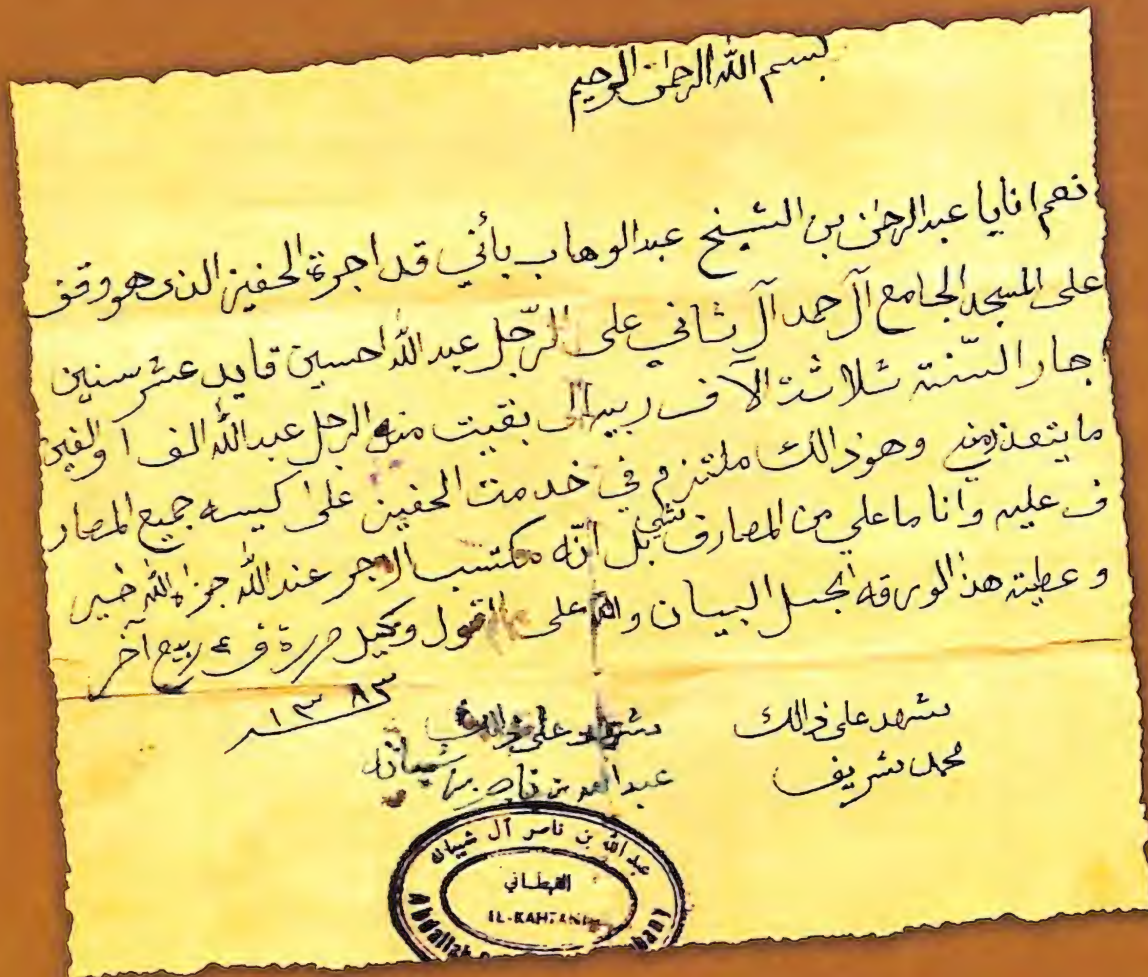 بسم الله الرحمن الرحيم
نعم انايا عبدالرحمن بن الشيخ عبدالوهاب بأني قد اجرة الحفيز الذي هو وقف
على المسجد الجامع آل حمد آل ثاني على الرّجل عبد الله احسين قايد عشر سنين
جار السّنته ثلاثة الآف ربيه بقيت منه الرجل عبدالله الف او الفين
ما يتعذر وهو ذالك ملتزم في خدمت الحفيز على كيسه جميع المصار
ف عليه وانا ما علي من المصارف شي بل أنّه مكتسب الاجر عند الله جزاه الله خير
و عطيته هذ الورقه لجل البيان والله على القول وكيل حررة ف ٤ ربيع آخر
١٣٨٣
نشهد على ذالك
محمد شريف
نشهد على ذالك
عبد الله بن ناصر بن شيبانه
عبد الله بن ناصر آل شيبانه
القحطاني
EL-KAHTANI
Abdallah